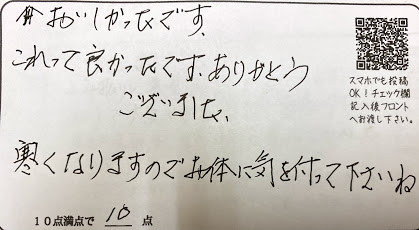 おいしかったです、
これって良かったです、ありがとう
ございました、
寒くなりますのでお体に気を付って下さいね
10点満点で 10 点
スマホでも投稿
OK！チェック欄
記入後フロント
へお渡し下さい。